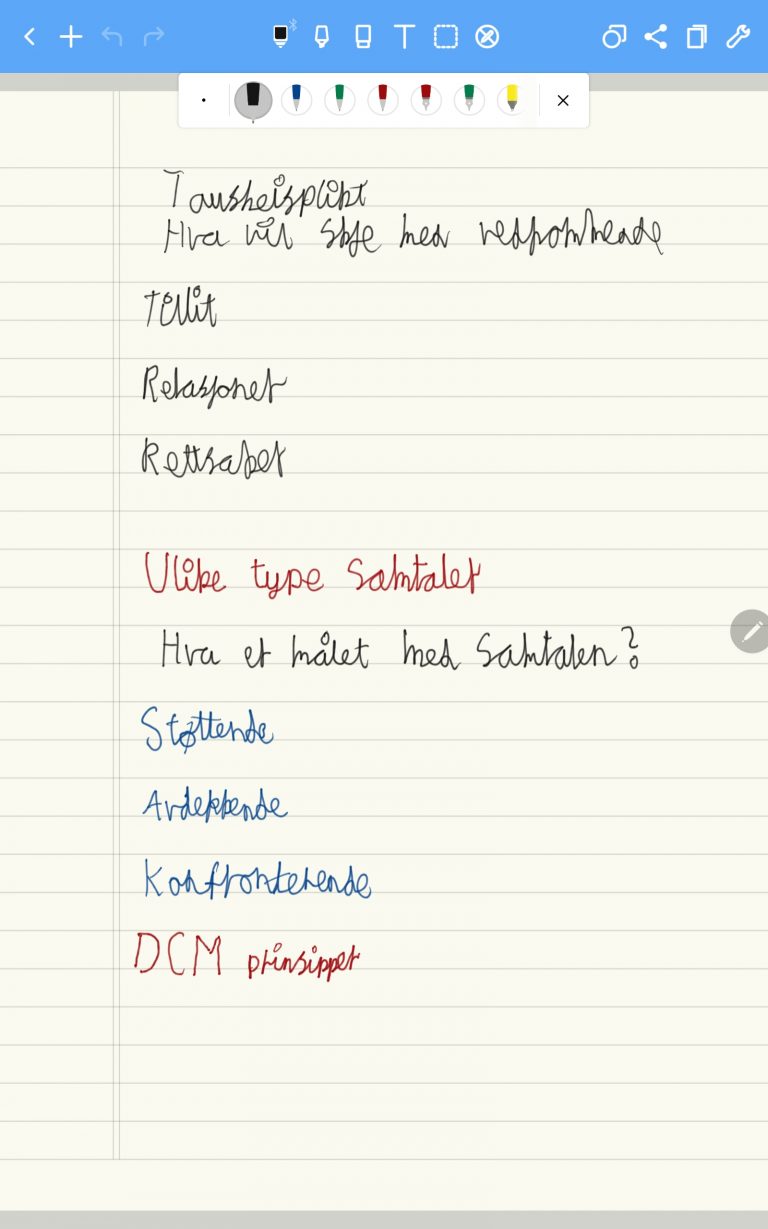 Tausheisplikt
Hva vil skje med vedkommende
Tillit
Relasjoner
Rettsaker
Ulike type samtaler
Hva er målet med samtalen?
Støttende
Avdekkende
Konfronterende
DCM prinsipper